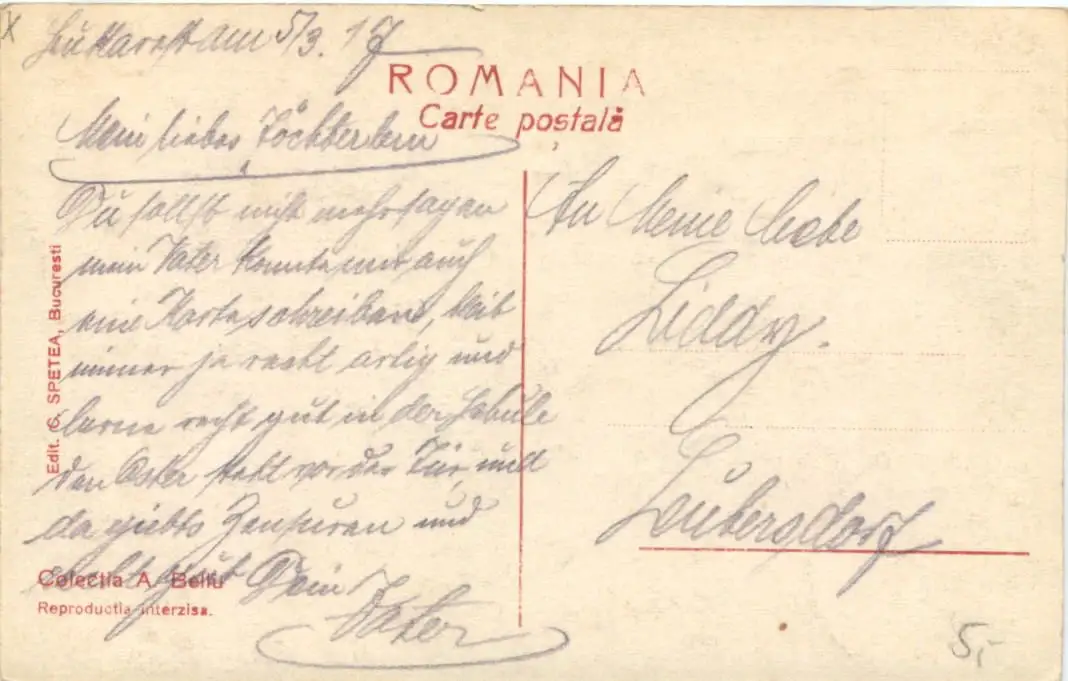 Bukarest am 5/3. 17
ROMANIA
Carte poştală
Mein liebes Töchterlein
Du sollst nicht mehr sagen
mein Vater konnte mir auch
eine Karte schreiben, bleib
immer ja recht artig und
lerne recht gut in der Schule
den Oster steht vor der Tür, und
da giebts Zensuren und
Dein
Vater
An Meine liebe
Liddy.
Leubersdorf
Edit. G. SPETEA, Bucuresti
Colectia A. Bellu
Reproductia interzisa.
5,-